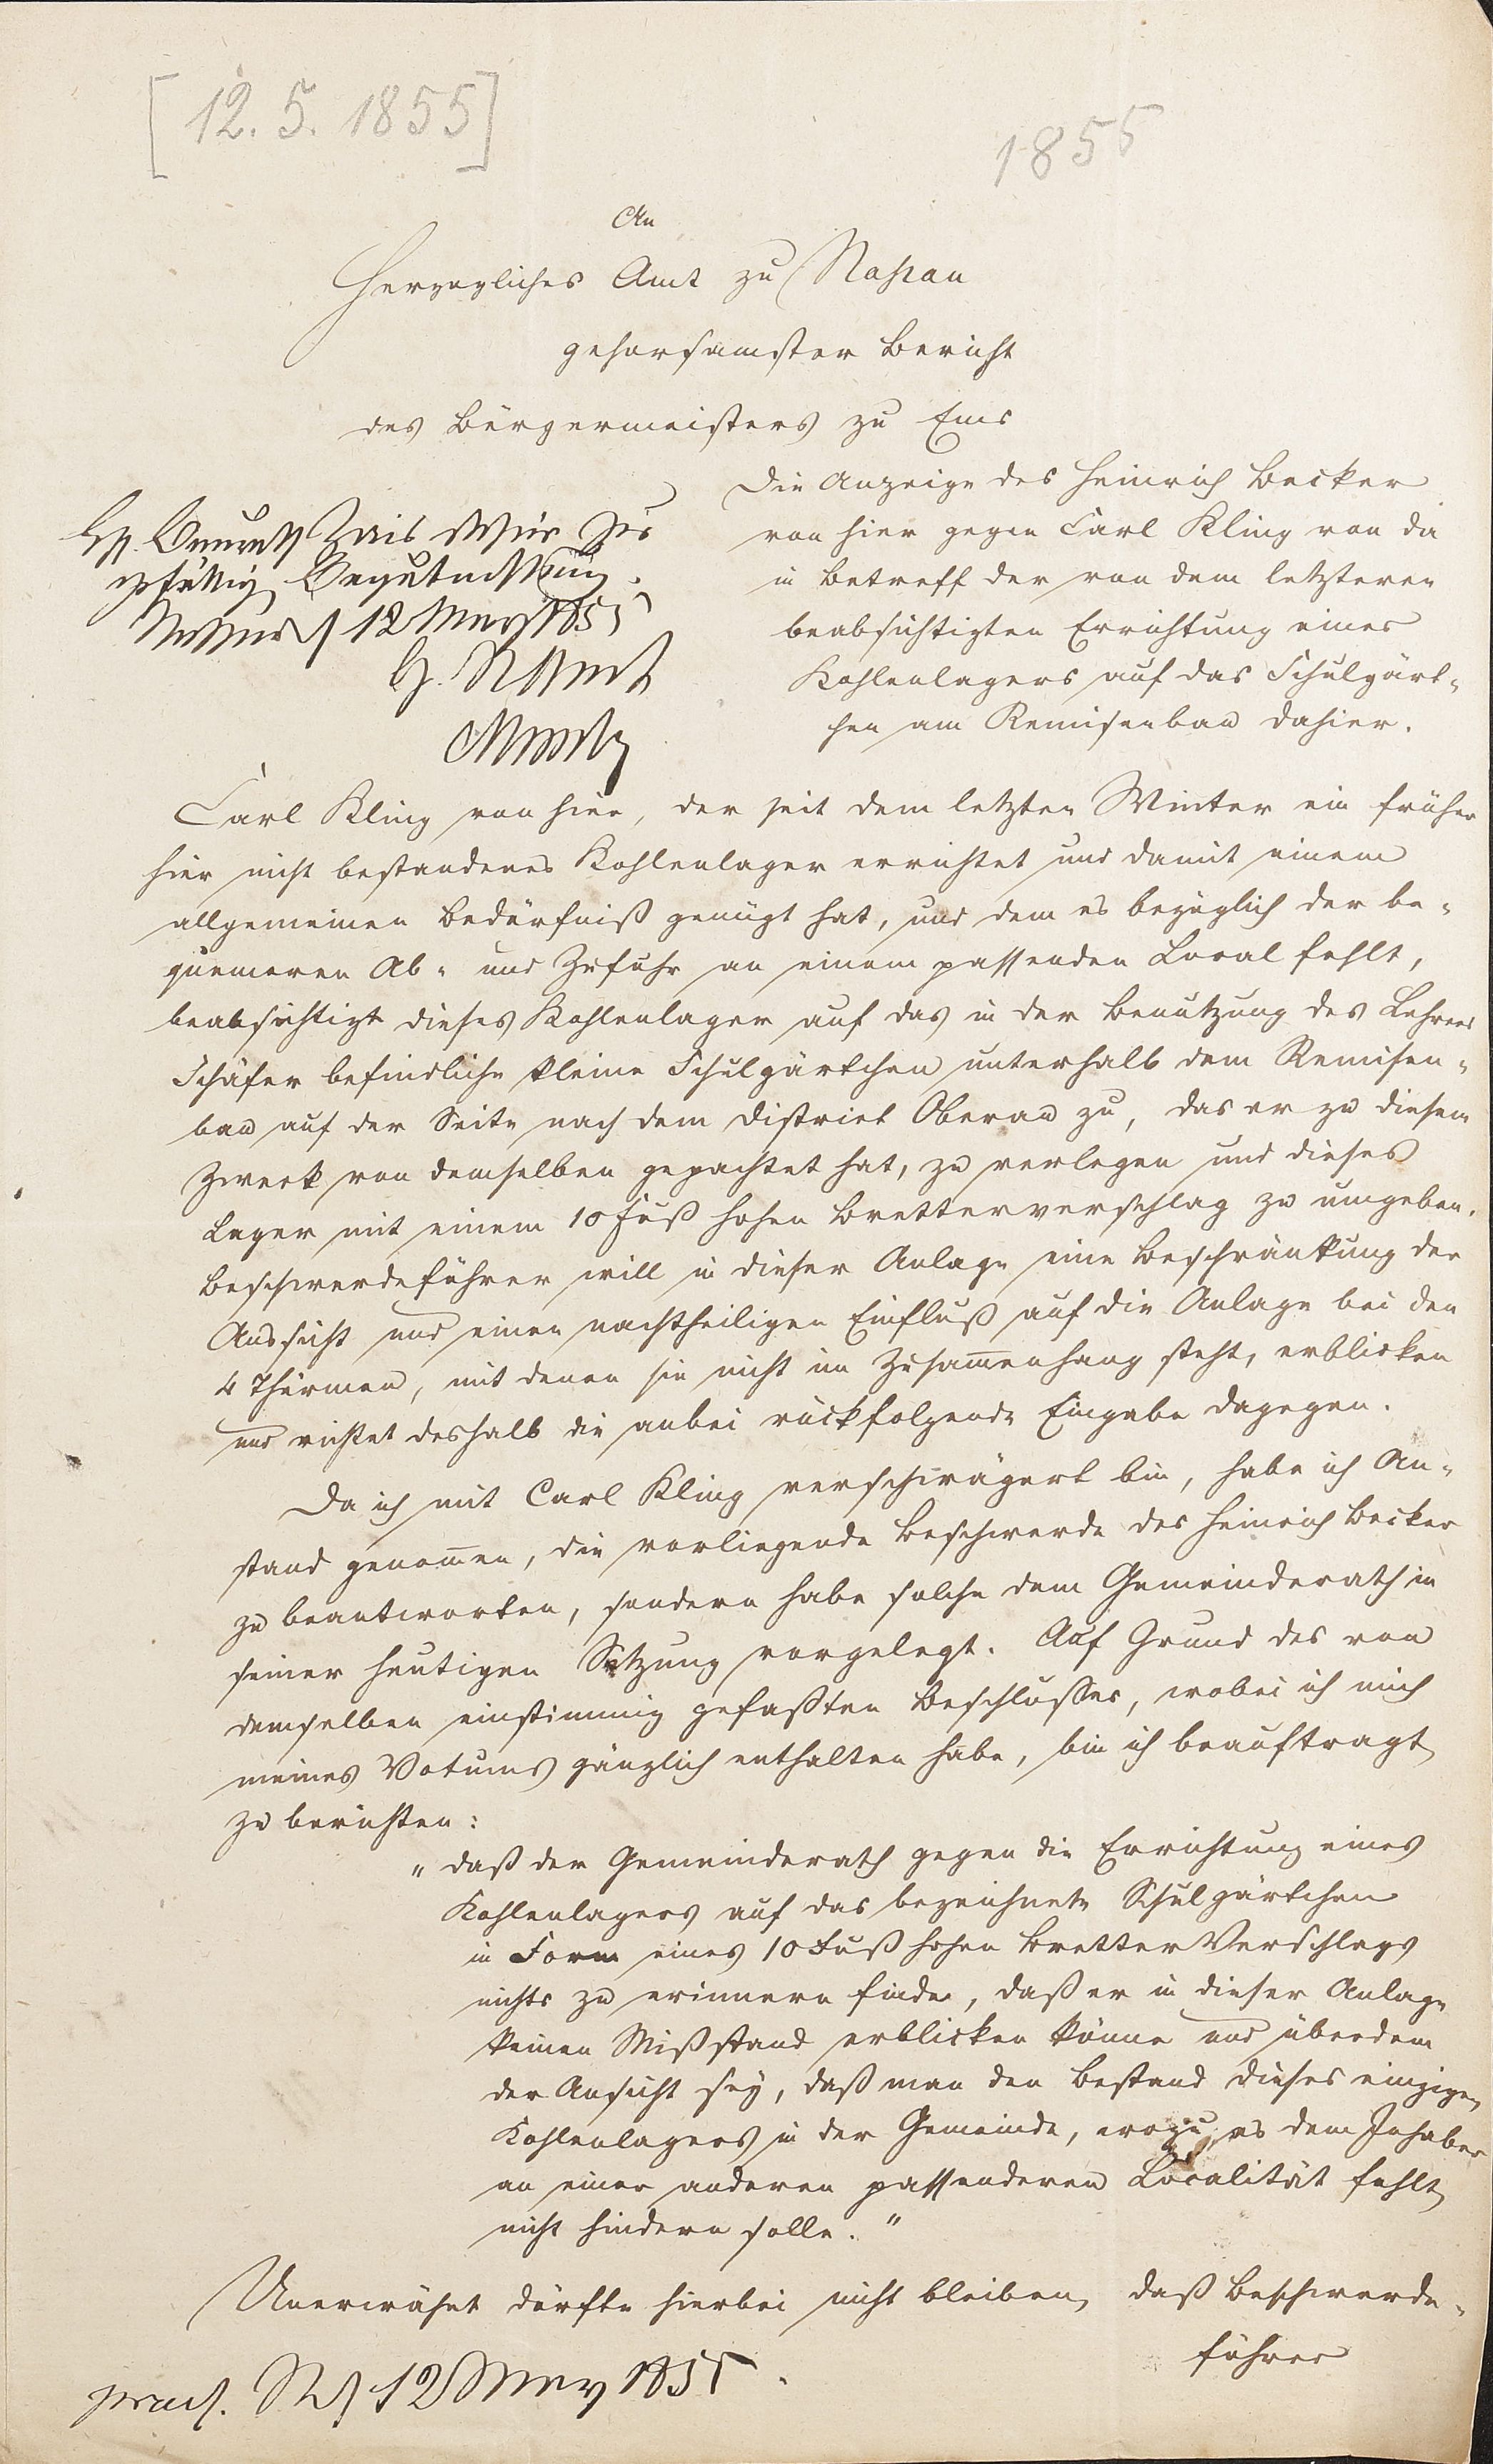 [12. 5. 1855]
1855
An
Herzogliches Amt zu Nassau
gehorsamster Bericht
des Bürgermeisters zu Ems
Die Anzeige des Heinrich Becker
von hier gegen Carl Kling von da
in Betreff der von dem letzteren
beabsichtigten Errichtung eines
Kohlenlagers auf das Schulgärt-
chen am Remisenbau dahier.
Begutachtung.
Nassau 12 May 1855
Carl Kling von hier, der seit dem letzten Winter ein früher
hier nicht bestandenes Kohlenlager errichtet und damit einem
allgemeinen Bedürfniß genügt hat, und dem es bezüglich der be-
quemeren Ab- und Zufuhr an einem passenden Local fehlt,
beabsichtigt dieses Kohlenlager auf das in der Benutzung des Lehrers
Schäfer befindliche kleine Schulgärtchen unterhalb dem Remisen-
bau auf der Seite nach dem District Oberau zu, das er zu diesem
Zweck von demselben gepachtet hat, zu verlegen und dieses
Lager mit einem 10 Fuß hohen Bretterverschlag zu umgeben.
Beschwerdeführer will in dieser Anlage eine Beschränkung der
Aussicht und einen nachtheiligen Einfluß auf die Anlage bei den
4 Thürmen, mit denen sie nicht im Zusam̅enhang steht, erblicken
und richtet deshalb die anbei rückfolgende Eingabe dagegen.
Da ich mit Carl Kling verschwägert bin, habe ich An-
stand genom̅en, die vorliegende Beschwerde des Heinrich Becker
zu beantworten, sondern habe solche dem Gemeinderath in
seiner heutigen Sitzung vorgelegt. Auf Grund des von
demselben einstimmig gefaßten Beschlusses, wobei ich mich
meines Votums gänzlich enthalten habe, bin ich beauftragt
zu berichten:
"daß der Gemeinderath gegen die Errichtung eines
Kohlenlagers auf das bezeichnete Schulgärtchen
in Form eines 10 Fuß hohen Bretter Verschlags
nichts zu erinnern finde, daß er in dieser Anlage
keinen Mißstand erblicken könne und überdem
der Ansicht sey, daß man den Bestand dieses einzigen
Kohlenlagers in der Gemeinde, wozu es dem Inhaber
an einer anderen passenderen Localität fehlt,
nicht hindern solle."
Unerwähnt dürfte hierbei nicht bleiben, daß Beschwerde-
führer
praes. 12 May 1855